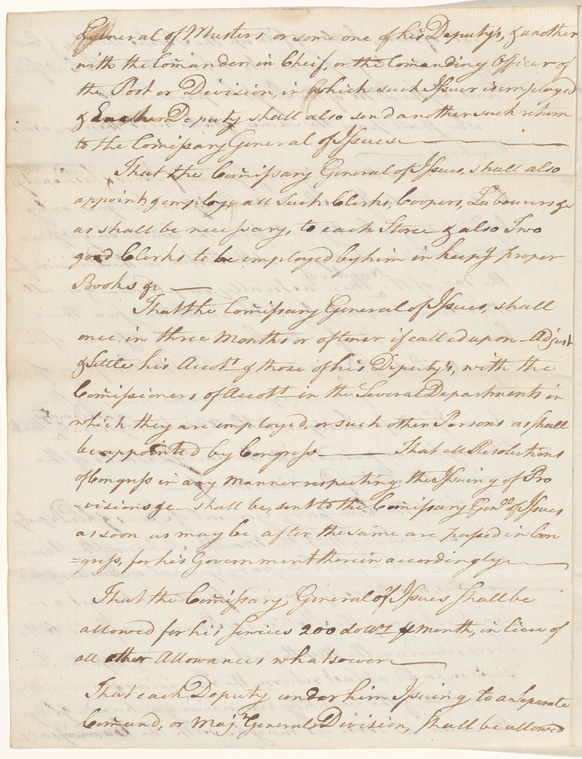 General of Musters or some one of his Deputys, & another
with the Comander in Cheif, or the Comanding Officer of
the Post or Division, in which such Issuer is employed
& Each Deputy shall also send another such return
to the Comissary General of Issues
That the Comissary General of Issues, shall also
appoint & employ all such Clerks, Coopers, Labourers &c
as shall be necessary, to each Store & also Two
good Clerks to be employed by him in keepg proper
Books &c
That the Comissary General of Issues, shall
once in three Months or oftener if called upon Adjust
& Settle his Accots & those of his Deputys, with the
Comissioners of Accots in the Several Departments in
which they are employed, or such other Persons as shall
be appointed by Congress That all Resolutions
of Congress in any manner respecting the Issuing of Pro
visions &c shall be sent to the Comissary Genl of Issues
as soon as may be after the same are passed in Con
=gress, for his Government therein accordingly
That the Comissary General of Issues shall be
allowed for his Services 200 dolls ⅌ month, in lieu of
all other Allowances whatsoever
That each Deputy under him Issuing to a Separate
Comand, or Majr Generals Division, shall be allowed